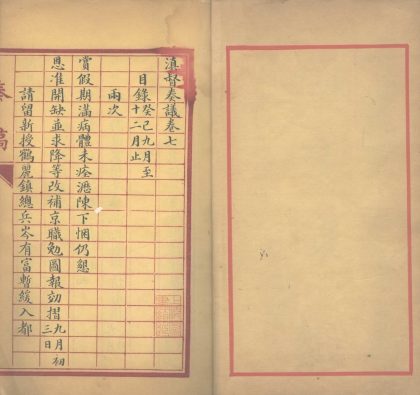 滇督奏議卷七
目錄癸巳九月至
十二月止
兩次
賞假期滿病體未痊瀝陳下悃仍懇
恩准開缺並求降等改補京職勉圖報効摺九月初
三日
請留新授鶴麗鎮總兵岑有富暫緩入都
奏稿